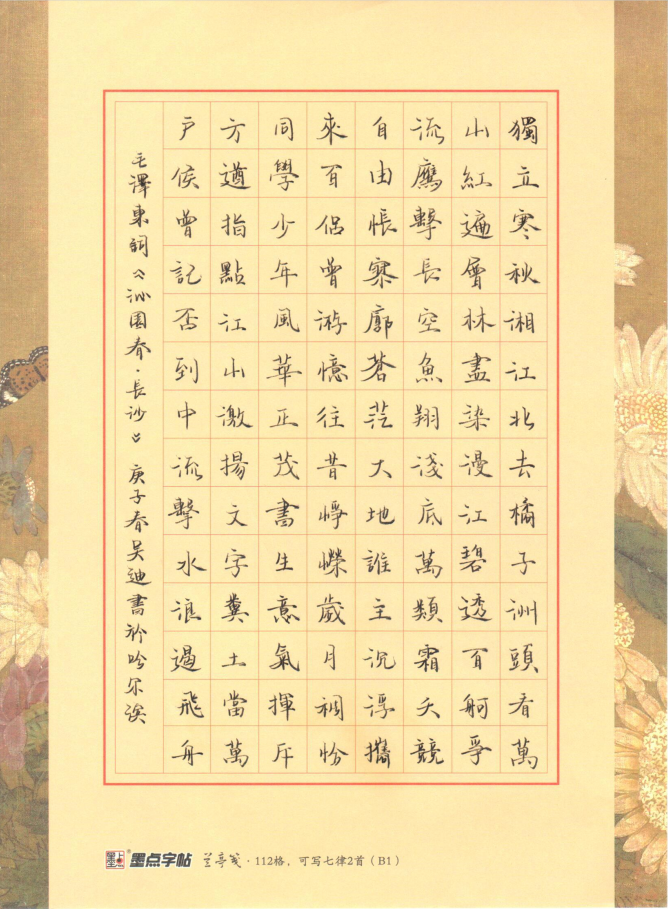 獨立寒秋湘江北去橘子洲頭看萬
山紅遍層林盡染漫江碧透百舸爭
流鷹擊長空魚翔淺底萬類霜天競
自由悵寥廓蒼茫大地誰主沉浮攜
來百侶曾游憶往昔崢嶸歲月稠恰
同學少年風華正茂書生意氣揮斥
方遒指點江山激揚文字糞土當萬
戶侯曾記否到中流擊水浪遏飛舟
毛澤東詞《沁園春·長沙》 庚子春吴迪書於吟尔
墨点字帖 兰亭笺·112格,可写七律2首(B1)